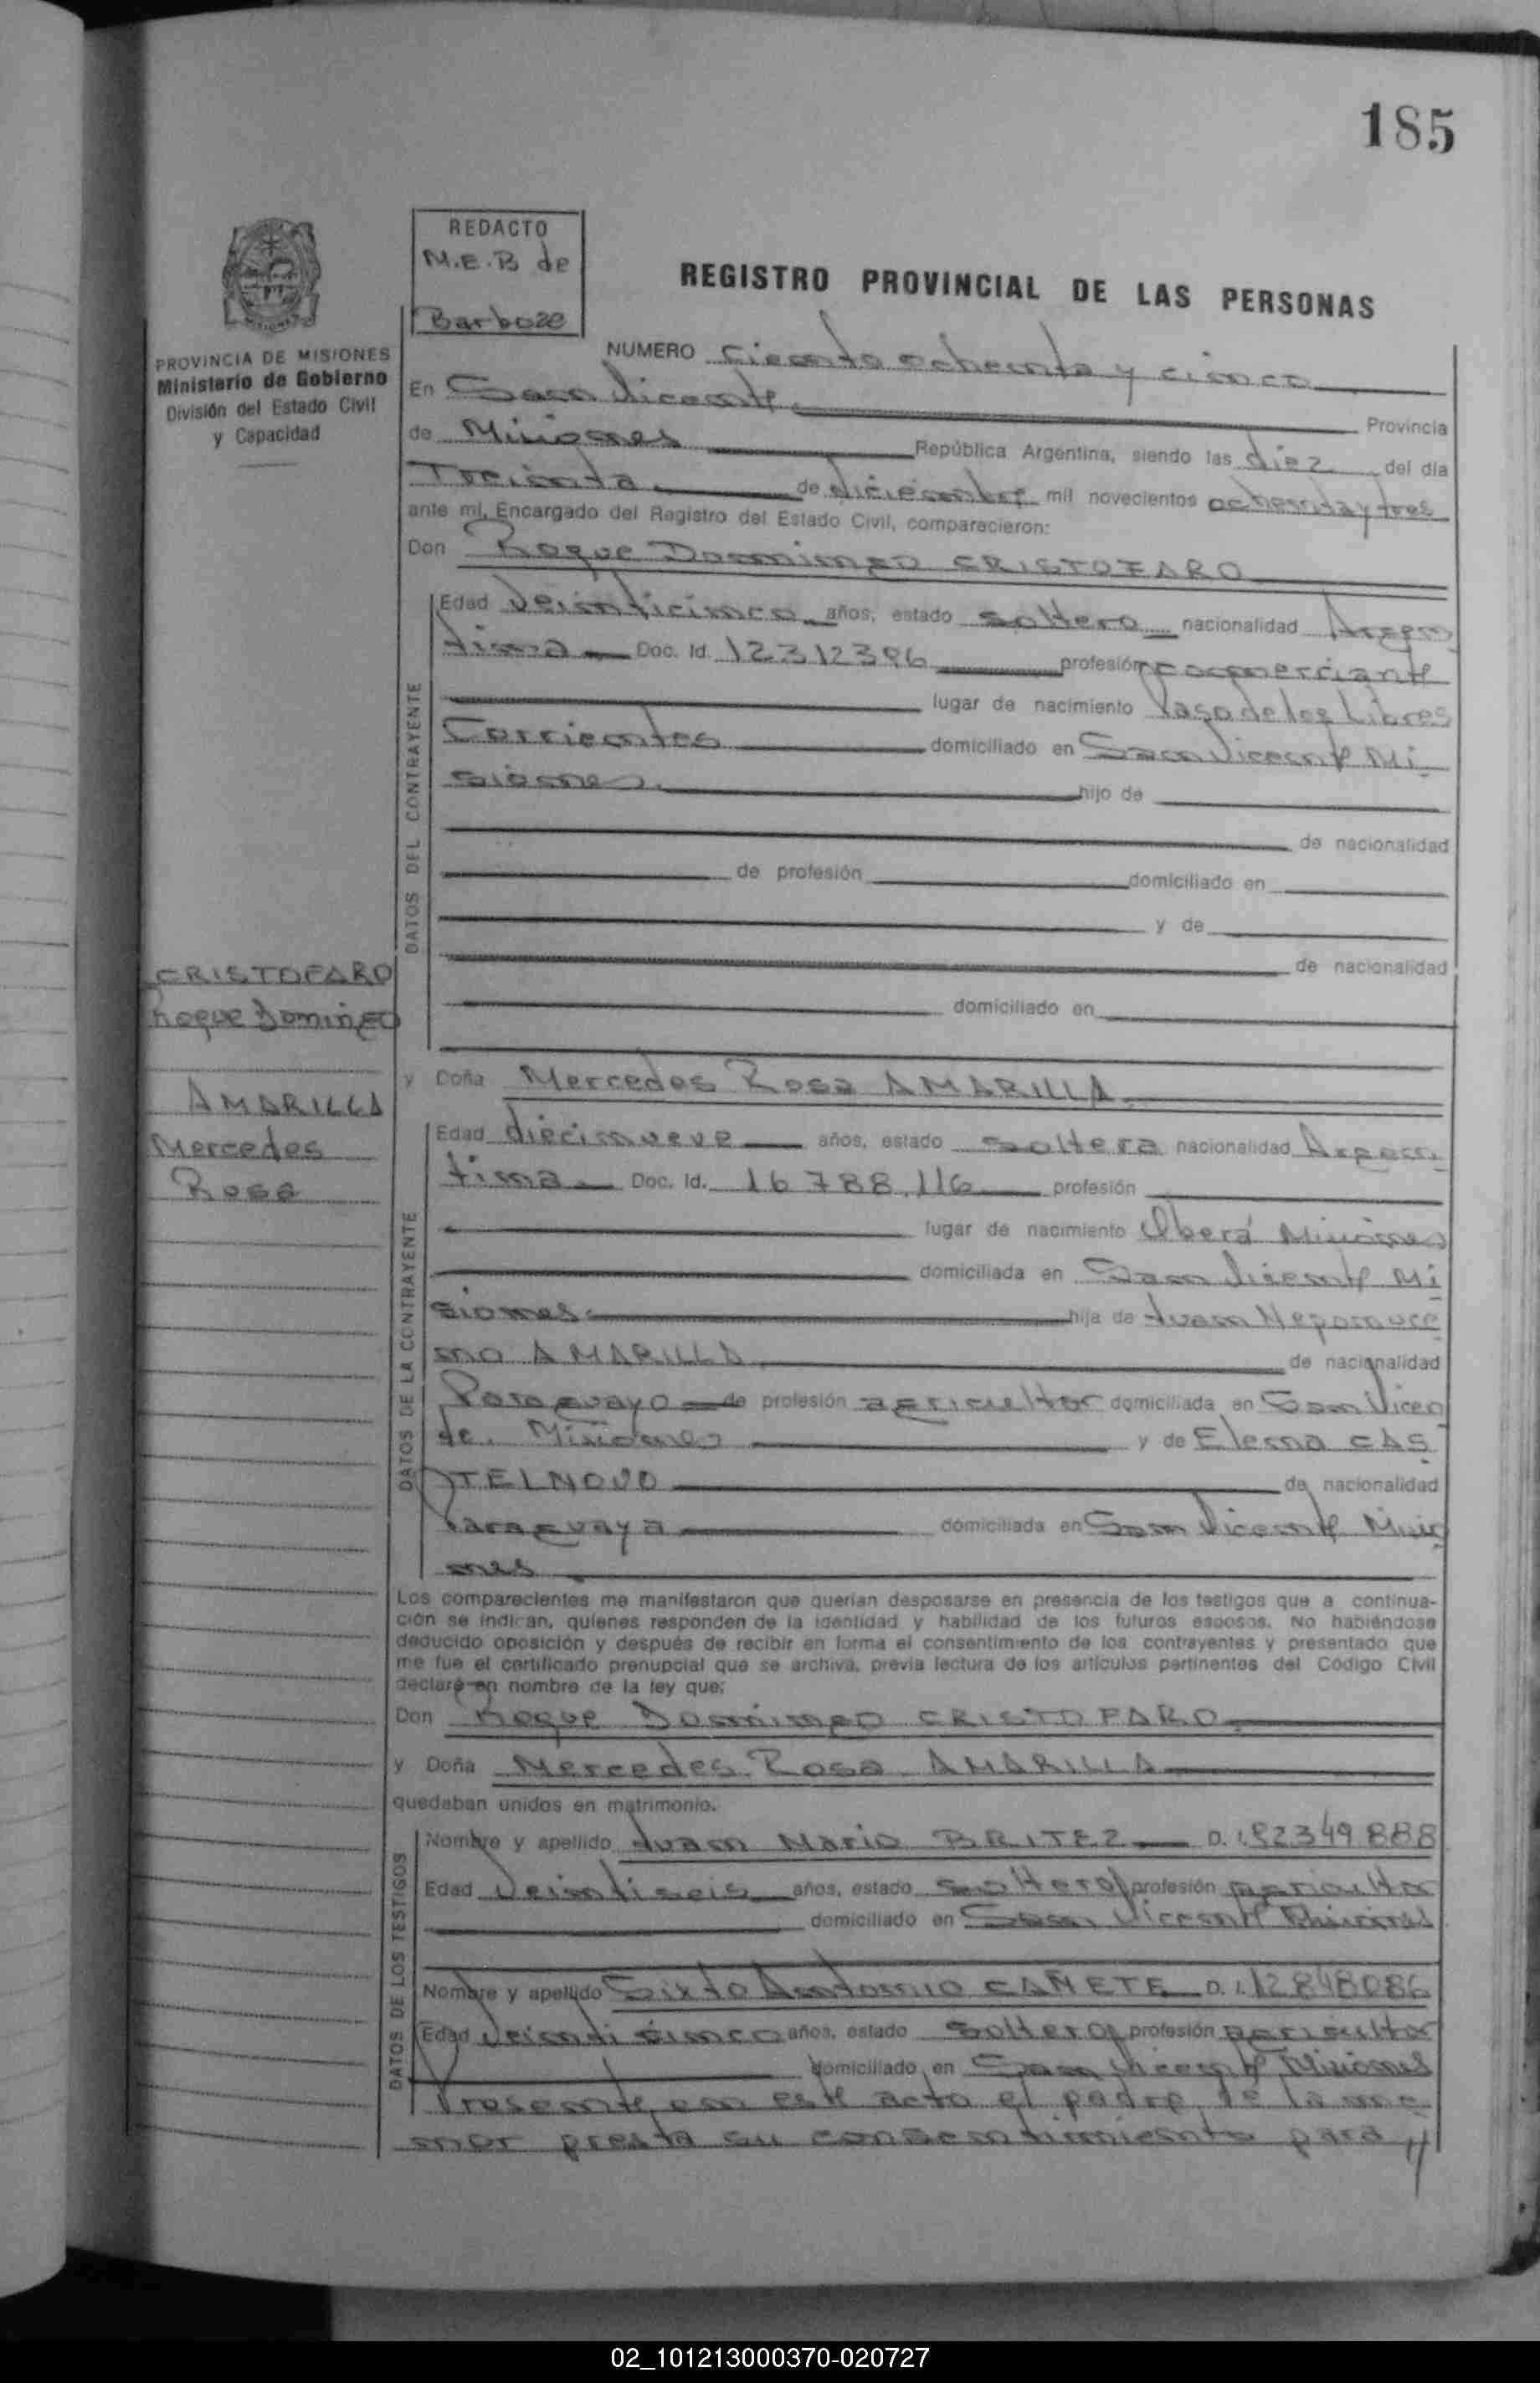 185
REDACTO
M.E.B de
Barboze
REGISTRO PROVINCIAL DE LAS PERSONAS
PROVINCIA DE MISIONES
Ministerio de Gobierno
División del Estado Civil
y Capacidad
NUMERO Ciento ochenta y cinco
En San Vicente Provincia
de Misiones República Argentina, siendo las diez del día
Treinta de diciembre mil novecientos ochenta y tres
ante mí, Encargado del Registro del Estado Civil, comparecieron:
Don Roque Domingo CRISTOFARO
DATOS DEL CONTRAYENTE
Edad Veinticinco años, estado soltero nacionalidad Argen
tina Doc. Id. 12312396 profesión comerciante
lugar de nacimiento Paso de los Libres
Corrientes domiciliado en San Vicente Mi
siones. hijo de
de nacionalidad
de profesión domiciliado en
y de
de nacionalidad
domiciliado en
CRISTOFARO
Roque Domingo
AMARILLA
Mercedes
Rosa
y Doña Mercedes Rosa AMARILLA
DATOS DE LA CONTRAYENTE
Edad diecinueve años, estado soltera nacionalidad Argen
tina Doc. Id. 16 788.116 profesión
lugar de nacimiento Oberá Misiones
domiciliada en San Vicente Mi
siones. hija de Juan Nepomuce
no AMARILLA de nacionalidad
Paraguayo de profesión agricultor domiciliada en San Vicen
te. Misiones y de Elena CAS
TELNOVO de nacionalidad
Paraguaya domiciliada en San Vicente Misio
nes
Los comparecientes me manifestaron que querían desposarse en presencia de los testigos que a continua-
ción se indican, quienes responden de la identidad y habilidad de los futuros esposos. No habiéndose
deducido oposición y después de recibir en forma el consentimiento de los contrayentes y presentado que
me fue el certificado prenupcial que se archiva, previa lectura de los artículos pertinentes del Código Civil
declaré en nombre de la ley que:
Don Roque Domingo CRISTOFARO
y Doña Mercedes Rosa AMARILLA
quedaban unidos en matrimonio.
DATOS DE LOS TESTIGOS
Nombre y apellido Juan Mario BRITEZ D. I. 92349.888
Edad Veintiseis años, estado soltero profesión agricultor
domiciliado en San Vicente Misiones
Nombre y apellido Sixto Antonio CAÑETE D. I. 12848086
Edad Veinti cinco años, estado soltero profesión agricultor
domiciliado en San Vicente Misiones
Presente en este acto el padre de la me
nor presta su consentimiento para //
02_101213000370-020727